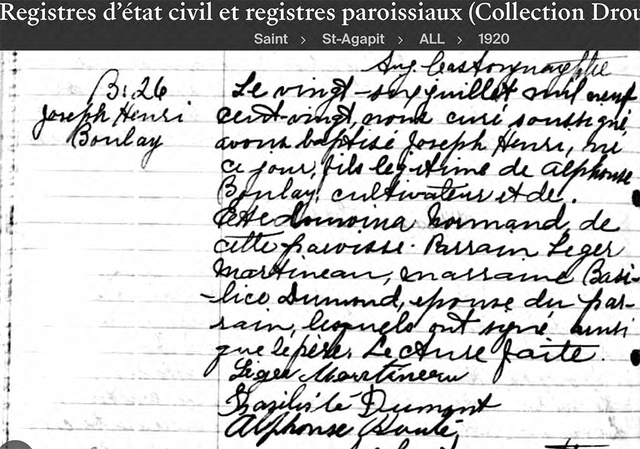 Registres d'état civil et registres paroissiaux (Collection Drou
Saint > St-Agapit > ALL > 1920
B. 26
Joseph Henri
Boulay
Le vingt-six juillet mil neuf
cent vingt, nous curé soussigné,
avons baptisé Joseph Henri, né
ce jour, fils légitime de Alphonse
Boulay cultivateur et de
Normand, de
cette paroisse. Parrain Léger
Martineau, marraine Basi-
-lice Dumond, épouse du par-
rain, lesquels ont signé ainsi
que le père. Lecture faite.
Léger Martineau
Dumont
Alphonse